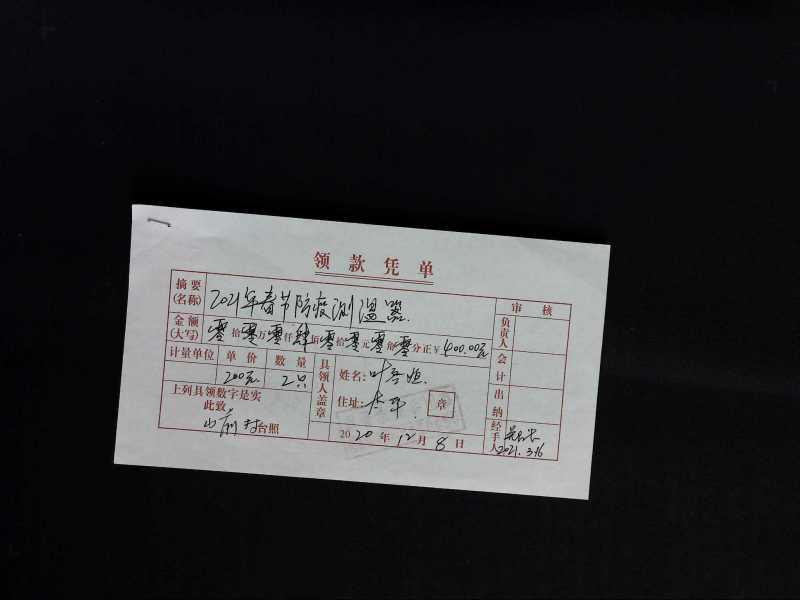 领款凭单
摘要(名称) 2021年春节防疫测温器. 审核
金额(大写) 零拾零万零仟肆佰零拾零元零角零分正¥400.00元 负责人
计量单位 单价 数量 具领人盖章 姓名: 叶 会计
200元 2只 住址: 本 章 出纳
上列具领数字是实
此致
山前村台照 2020年12月8日 经手人 2021.3.16